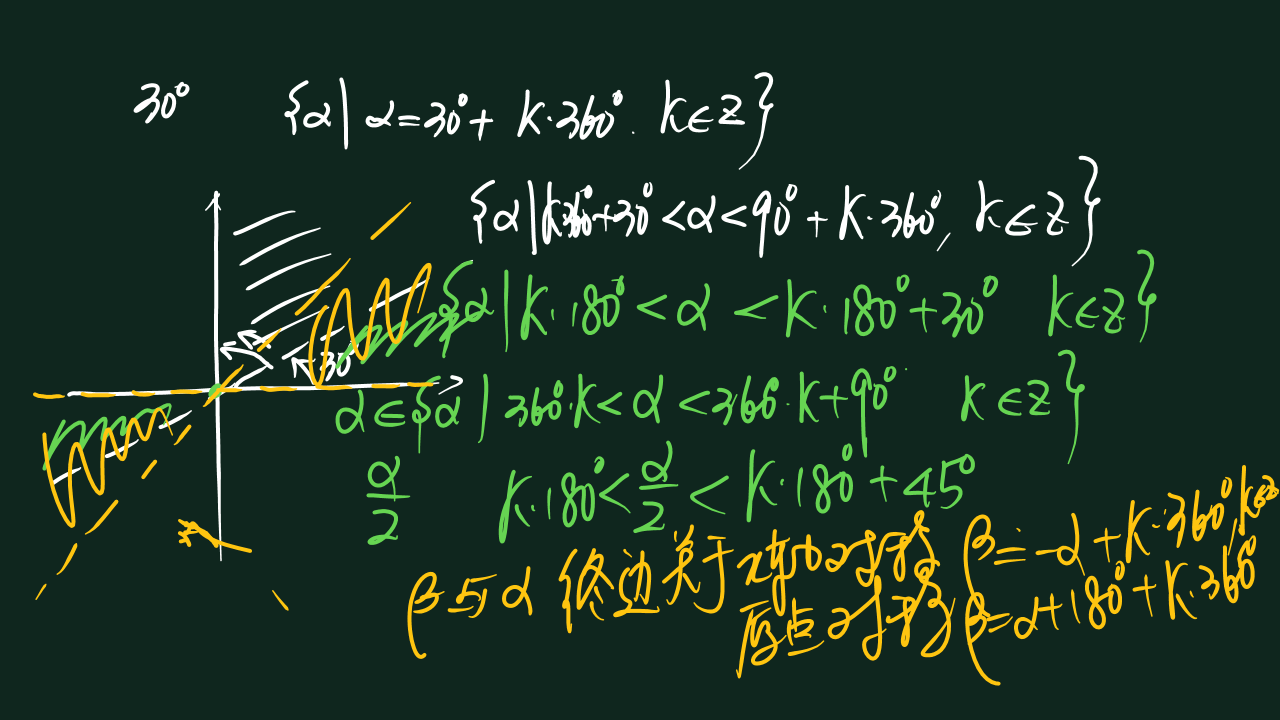 30° {α| α=30°+ K·360°. K∈Z}
{α|K·360°+30°<α<90°+K·360°, K∈Z}
30°
{α|K·180°<α<K·180°+30° K∈Z}
α∈{α|360°·K<α<360°·K+90° K∈Z}
α/2 K·180°<α/2<K·180°+45°
β与α 终边关于x轴对称 β=-α+K·360°,K∈Z
原点对称 β=α+180°+K·360°